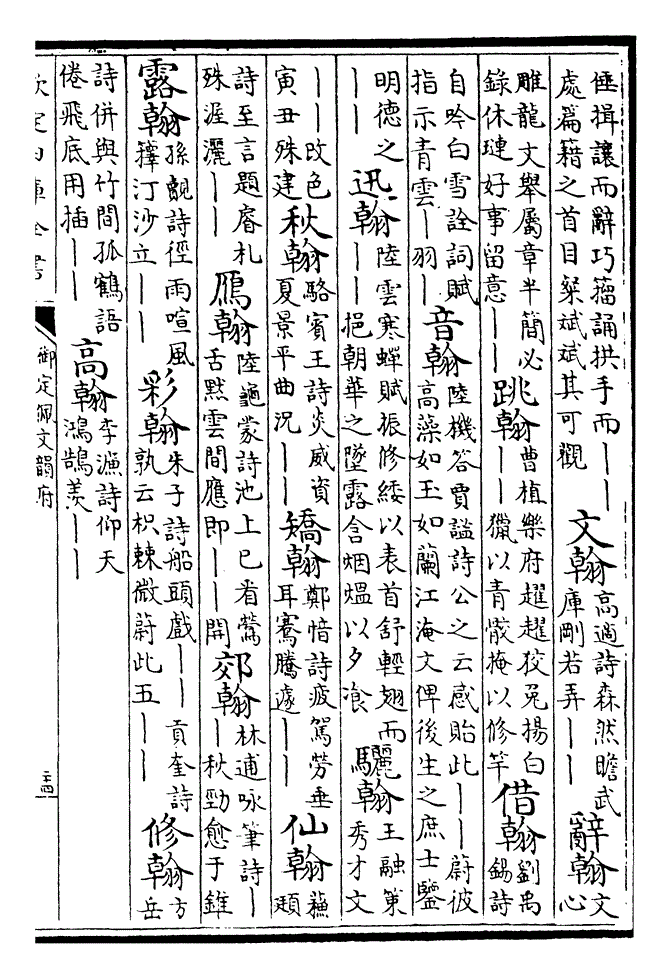 倕揖讓而辭巧籀誦拱手而丨丨
處篇籍之首目粲斌斌其可觀
文翰
高適詩森然瞻武
庫剛若弄丨丨
辭翰
文
心
雕龍文舉屬章半簡必
錄休璉好事留意丨丨
跳翰
曹植樂府趯趯狡兔揚白
丨丨獵以青骹掩以修竿
借翰
劉禹
錫詩
自吟白雪詮詞賦
指示青雲丨羽丨
音翰
陸機答賈謐詩公之云感貽此丨丨蔚彼
高藻如玉如蘭江淹文俾後生之庶士鑒
明德之
丨丨
迅翰
陸雲寒蟬賦振修緌以表首舒輕翅而
丨丨挹朝華之墜露含烟熅以夕飡
驪翰
王融策
秀才文
丨丨改色
寅丑殊建
秋翰
駱賓王詩炎威資
夏景平曲況丨丨
矯翰
鄭愔詩疲駕勞垂
耳騫騰遽丨丨
仙翰
蘇
頲
詩至言題睿札
殊渥灑丨丨
鴈翰
陸龜蒙詩池上已看鶯
舌默雲間應即丨丨開
郊翰
林逋咏筆詩丨
丨秋勁愈于錐
露翰
孫覿詩徑雨喧風
籜汀沙立丨丨
彩翰
朱子詩船頭戲丨丨貢奎詩
孰云枳棘微蔚此五丨丨
修翰
方
岳
詩併與竹間孤鶴語
倦飛底用插丨丨
高翰
李漁詩仰天
鴻鵠羨丨丨
欽定四庫全書
御定佩文韻府
二十四